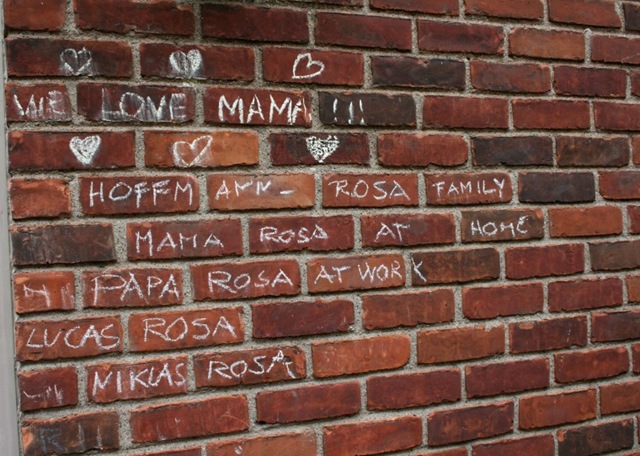 WE LOVE MAMA !!!
HOFFM ANN- ROSA FAMILY
MAMA ROSA AT HOME
HI PAPA ROSA AT WORK
LUCAS ROSA
NIKLAS ROSA